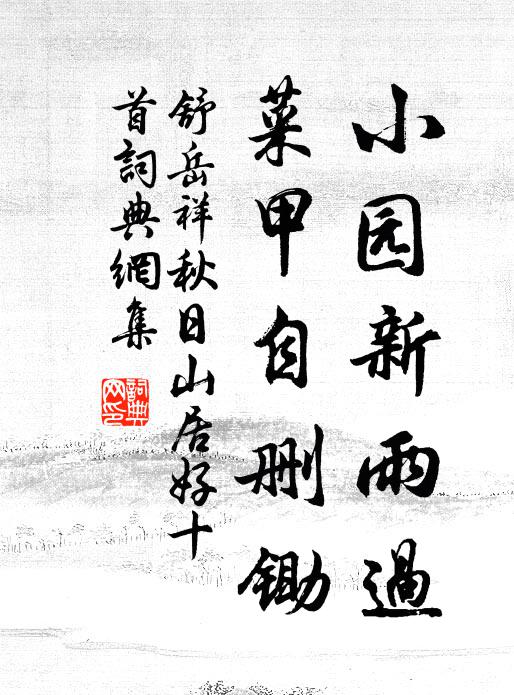 小园新雨過
菜甲自删锄
舒岳祥秋日山居好十
首詞典網集
詞典
网印